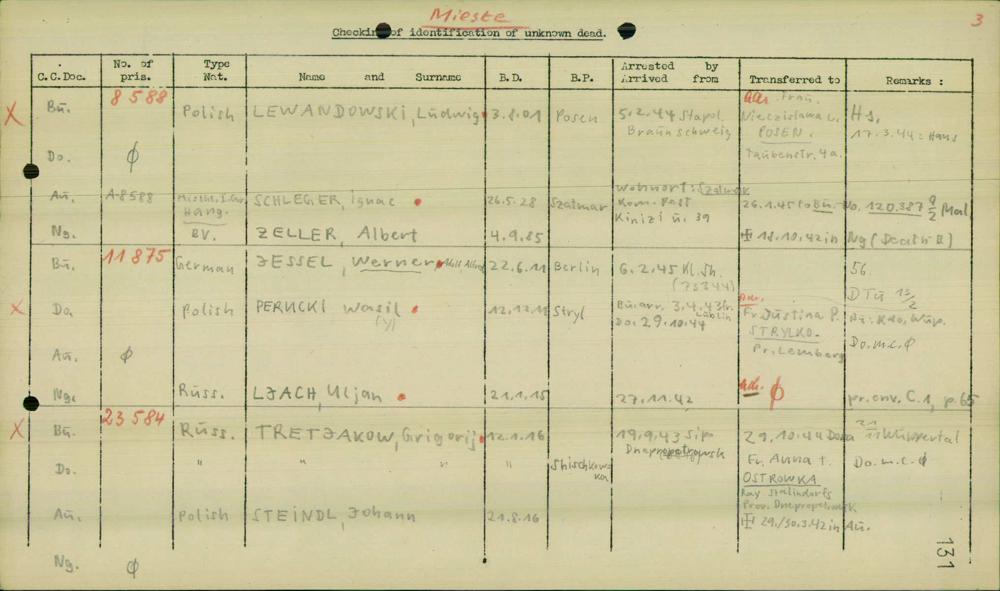 Mieste
3
Checking of identification of unknown dead.
C.C.Doc. No. of pris. Type Nat. Name and Surname B.D. B.P. Arrested by Arrived from Transferred to Remarks :
8588
X Bū. Polish LEWANDOWSKI, Ludwig 3.8.01 Posen 5.2.44 Stapol. Braunschweig Adr. Frau. POSEN. Taubenstr. 4a. Hs, 17.3.44 = Hans
Do. ϕ
Aū. A-8588 Hung. SCHLEGER, Ignac 26.5.28 Szatmar Wohnort: Kinizi ū. 39 26.1.45 to Bū. No. 120.387
Ng. BV. ZELLER, Albert 4.9.85 18.10.42 in Ng (Death II)
11875
Bū. German JESSEL, Werner 22.6.11 Berlin 6.2.45 Kl. Sh. (75344) 56. DTū 13/2
X Do. Polish PERUCKI Wasil (y) 12.12.11 Stryl Bū. arr. 3.4.43 fr. Lublin Do. 29.10.44 Adr. Fr. Justina P. STRYLKO. Pr. Lemberg Aū: Kdo, Wup. Do.m.c. ϕ
Aū. ϕ
Ng. Rūss. LJACH, Uljan 21.1.15 27.11.42 Adr. ϕ pr. env. C.1, p.65
23584
X Bū. Rūss. TRETJAKOW, Grigorij 12.1.16 19.9.43 Sip Dnepropetrowsk 29.10.44 Dora Wuppertal
Do. " " " " Fr. Anna T. OSTROWKA Ray Stalindorf Prov. Dnepropetrowsk Do.m.c. ϕ
Aū. Polish STEINDL, Johann 21.8.16 29./30.3.42 in Aū.
Ng. ϕ
131